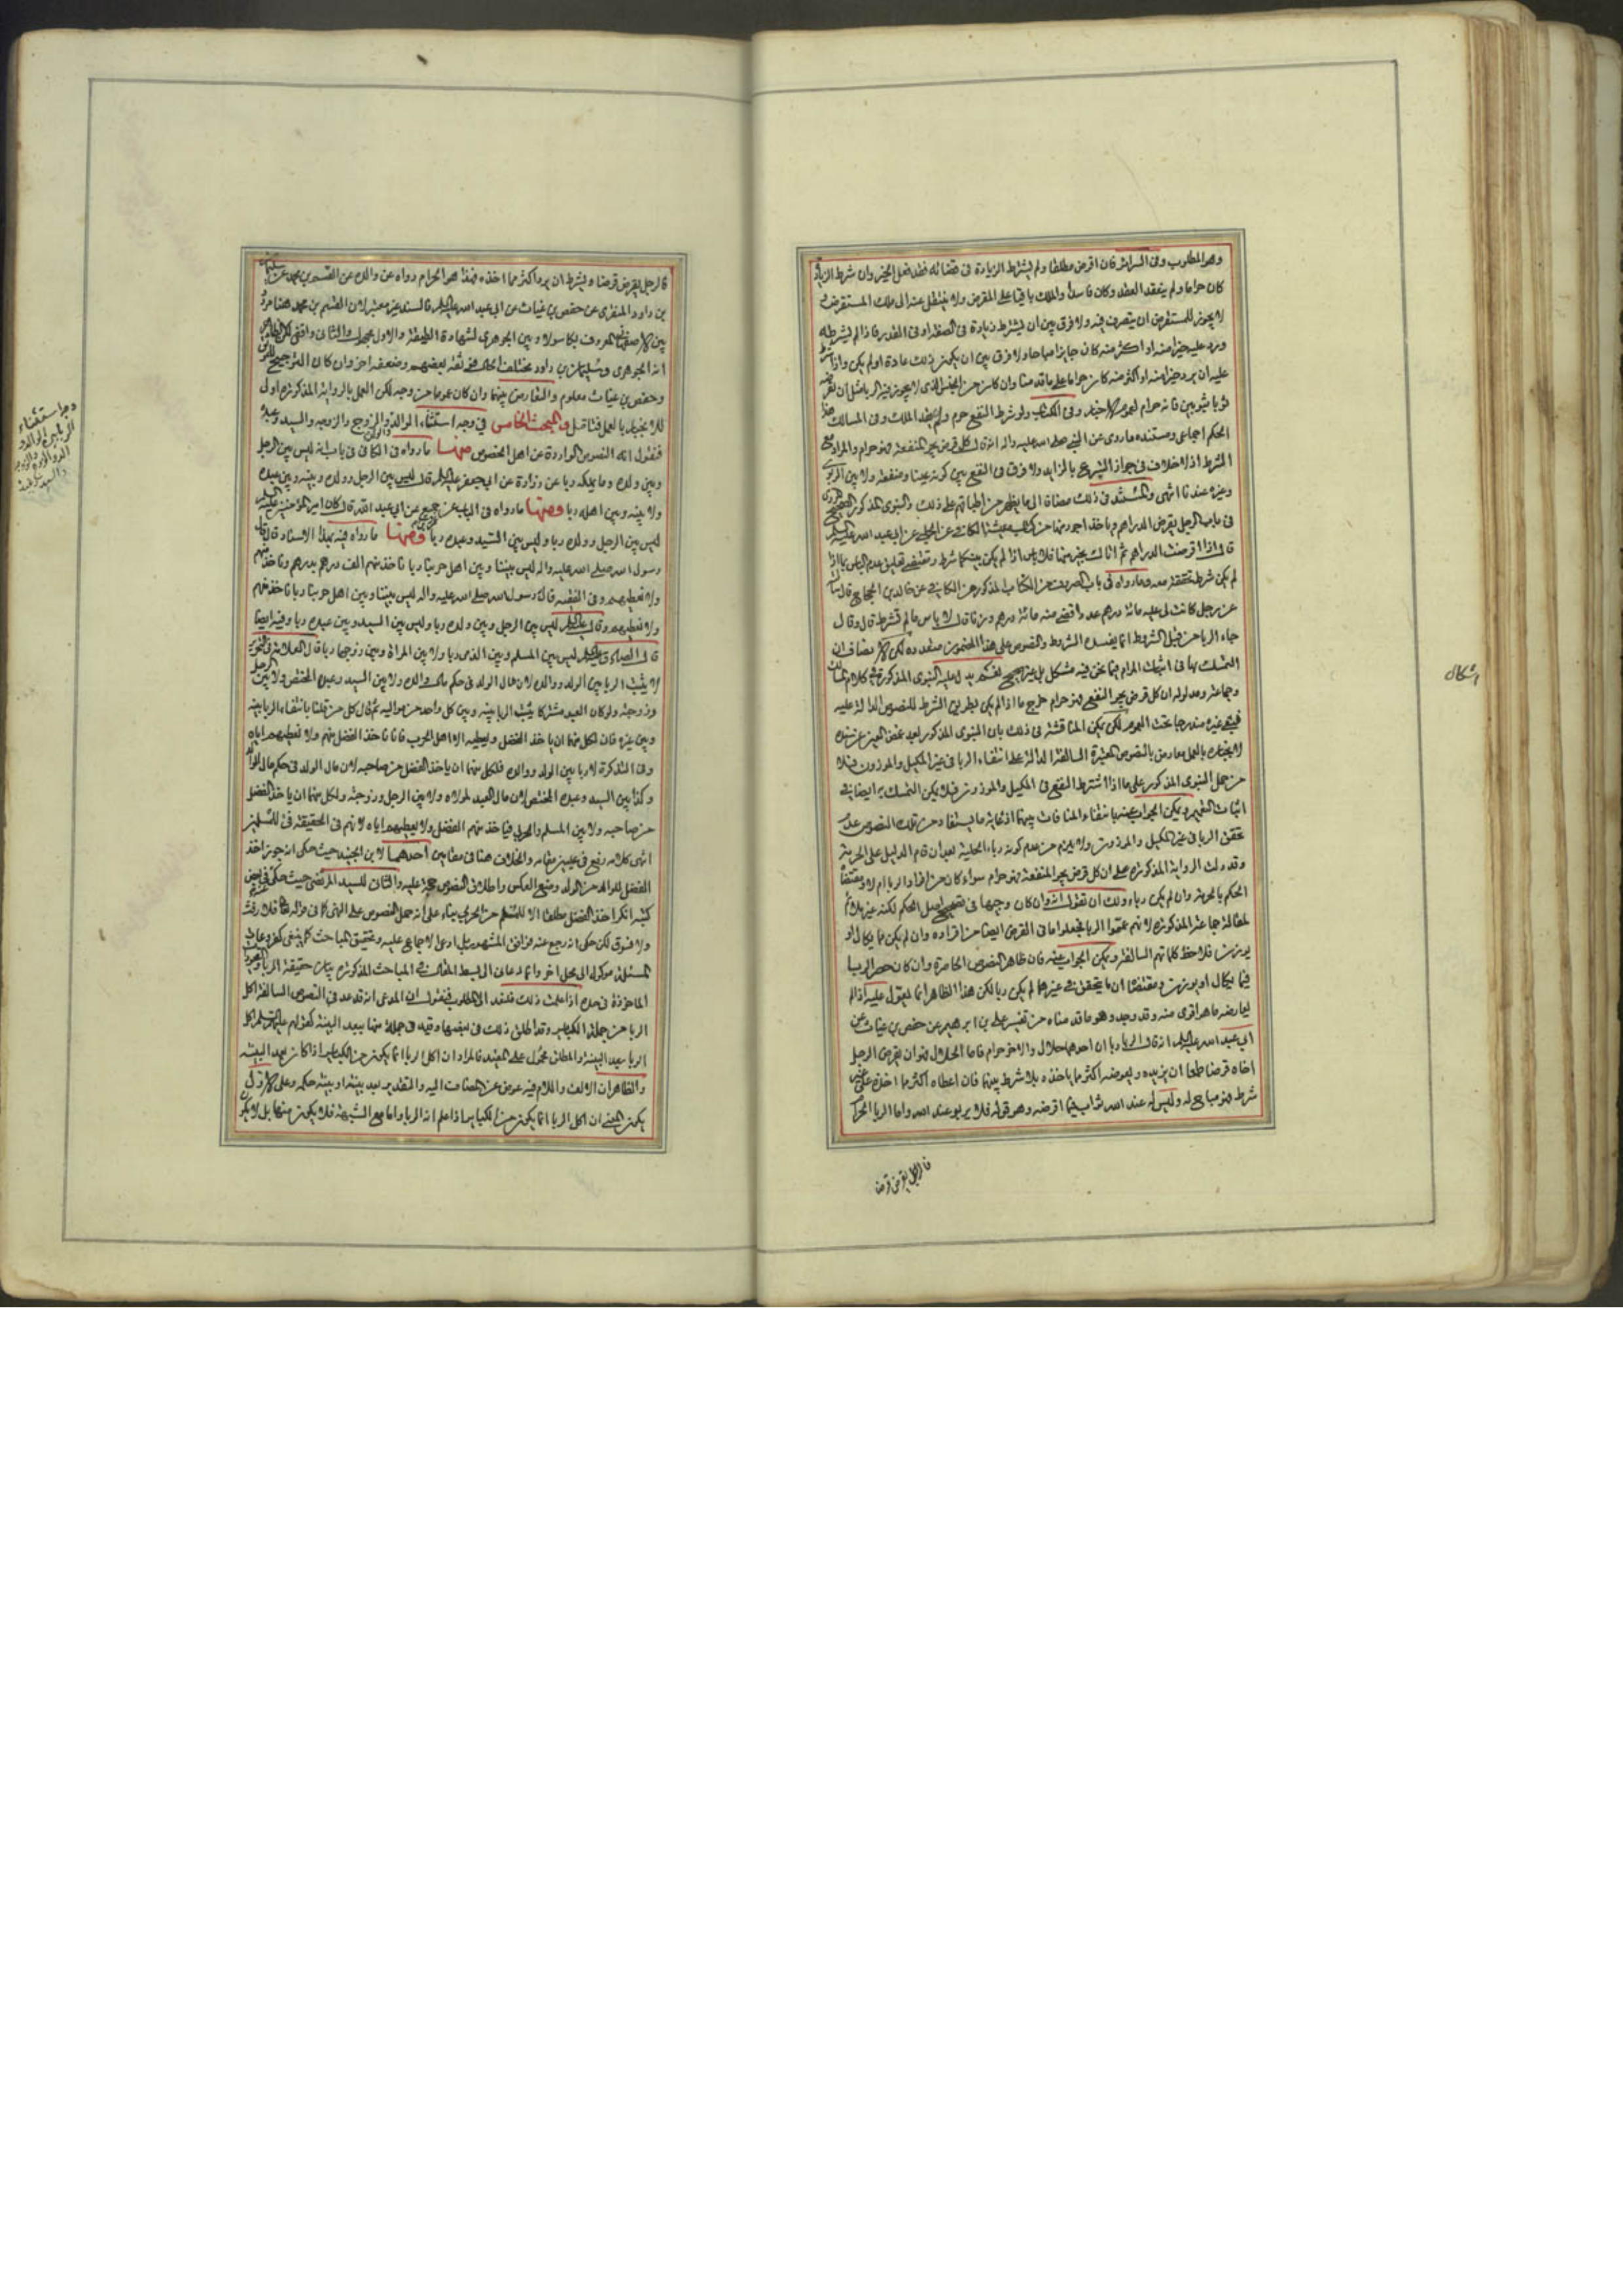 وهو المطلوب وفى السرائر فان اقرض مطلقا ولم يشترط الزيادة فى قضائه فقد فعل الخير وان شرط الزيادة
كان حراما ولم ينعقد العقد وكان فاسدا والملك باقيا على المقرض ولا ينتقل عنه الى ملك المستقرض
لا يجوز للمستقرض ان يتصرف فيه ولا فرق بين ان يشترط زيادة فى الصفة او فى القدر فاذا لم يشترط
ورد عليه خيرا منه او اكثر منه كان جايزا مباحا ولا فرق بين ان يكون ذلك عادة او لم يكن واذا شرط
عليه ان يرد خيرا منه او اكثر منه كان حراما على ما قدمنا وان كان من الجنس الذى لا يجوز فيه الربا مثل ان يقرضه
ثوبا بثوبين فانه حرام لعموم الاخبار وفى الكتاب ولو شرط النفع حرم ولم يفد الملك وفى المسالك هذا
الحكم اجماعى ومستنده ما روى عن النبى صلى الله عليه واله انه قال كل قرض يجر المنفعة فهو حرام والمراد مع
الشرط اذ لا خلاف فى جواز التبرع بالزايد ولا فرق فى النفع بين كونه عينا ومنفعة ولا بين الربوى
وغيره عندنا انتهى والمستند فى ذلك مضافا الى ما يظهر من اطباقهم على ذلك والنبوى المذكور الصحيح المروى
فى باب الرجل يقرض الدراهم وياخذ اجود منها من كتاب معيشة الكافى عن الحلبى عن ابى عبد الله عليه السلام
قال اذا اقرضت الدراهم ثم اتاك بخير منها فلا باس اذا لم يكن بينكما شرط ومقتضى تعليق عدم الباس بما اذا
لم يكن شرط تحققه معه وما رواه فى باب الصروف من الكتاب المذكور من الكافى عن خالد بن الحجاج قال سألته
عن رجل كانت لى عليه مائة درهم عددا قضانيه مائة درهم وزنا قال لا باس ما لم تشترط قال وقال
جاء الربا من قبل الشروط انما يفسده الشروط والنصوص على هذا المضمون متعددة لكن
التمسك بها فى اثبات المرام فيما نحن فيه مشكل بل غير صحيح نعم يدل عليه النبوى المذكور فى كلام
وجماعة ومدلوله ان كل قرض يجر النفع فهو حرام خرج ما اذا لم يكن بطريق الشرط للنصوص الدالة عليه
فبقى غيره مندرجا تحت العموم لكن يمكن المناقشة فى ذلك بان النبوى المذكور بعد غض العين عن سنده
لانجباره بالعمل معارض بالنصوص المعتبرة السالفة الدالة على انتفاء الربا فى غير المكيل والموزون فلا
من حمل النبوى المذكور على ما اذا اشترط النفع فى المكيل والموزون فلا يمكن التمسك به ايضا فى
اثبات التعميم ويمكن الجواب عنه بانتفاء المنافات بينهما اذ غاية ما يستفاد من تلك النصوص عدم
تحقق الربا فى غير المكيل والموزون ولا يلزم من عدم كونه رباء الحلية بعد ان قام الدليل على الحرمة
وقد دلت الرواية المذكورة على ان كل قرض يجر المنفعة فهو حرام سواء كان من افراد الربا ام لا ومقتضا
الحكم بالحرمة وان لم يكن رباء ولك ان تقول انه وان كان وجيها فى تصحيح اصل الحكم لكنه غير ملائم
لمقالة جماعة المذكورة لانهم عمموا الربا فجعلوا ما فى القرض ايضا من افراده وان لم يكن مما يكال او
يوزن فلاحظ كلماتهم السالفة ويمكن الجواب عنه فان ظاهر النصوص الحاصرة وان كان حصر الربا
فيما يكال او يوزن ومقتضا ان ما يتحقق فى غيرهما لم يكن ربا لكن هذا الظاهر انما يعول عليه اذا لم
يعارضه ما هو اقوى منه وقد وجد وهو ما قدمناه من تفسير على بن ابرهيم عن حفص بن غياث عن
ابى عبد الله عليه السلام انه قال الربا ربا ان احدهما حلال والاخر حرام فاما الحلال فهو ان يقرض الرجل
اخاه قرضا طمعا ان يزيده ويعوضه اكثر مما ياخذه بلا شرط بينهما فان اعطاه اكثر مما اخذه على غير
شرط فهو مباح له وليس له عند الله ثواب فيما اقرضه وهو قوله فلا يربو عند الله واما الربا الحرام
فالرجل يقرض قرضا
اشكال
فالرجل يقرض قرضا ويشترط ان يرد اكثر مما اخذه فهذا هو الحرام رواه عن والده عن القسم بن محمد عن سليمان
بن داود المنقرى عن حفص بن غياث عن ابى عبد الله عليه السلام فالسند غير معتبر لان القسم بن محمد هنا مردد
بين الاصفهانى المعروف بكاسولا وبين الجوهرى لشهادة الطبقة والاول مجهول والثانى واقفى لكن الظاهر
انه الجوهرى وسليمان بن داود مختلف الحال فوثقه بعضهم وضعفه اخر وان كان الترجيح للتوثيق
وحفص بن غياث معلوم والتعارض بينهما وان كان عموما من وجه لكن العمل بالرواية المذكورة اولى
للانجبار بالعمل فتامل المبحث الخامس فى وجه استثناء الوالد والولد والزوج والزوجه والسيد وعبده
فنقول انه النصوص الواردة عن اهل الخصوص منها ما رواه فى الكافى فى باب انه ليس بين الرجل
وبين ولده وما يملكه ربا عن زرارة عن ابى جعفر عليه السلام قال ليس بين الرجل وولده وبينه وبين عبده
ولا بينه وبين اهله ربا ومنها ما رواه فى الباب عن جميع عن ابى عبد الله قال كان امير المؤمنين عليه السلام
ليس بين الرجل وولده ربا وليس بين السيد وعبده ربا ومنها ما رواه فيه بهذا الاسناد قال قال
رسول الله صلى الله عليه واله ليس بيننا وبين اهل حربنا ربا ناخذ منهم الف درهم بدرهم وناخذ منهم
ولا نعطيهم وفى الفقيه قال رسول الله صلى الله عليه واله ليس بيننا وبين اهل حربنا ربا ناخذ منهم
ولا نعطيهم وقال عليه السلام ليس بين الرجل وبين ولده ربا وليس بين السيد وبين عبده ربا وفيه ايضا
قال الصادق عليه السلام ليس بين المسلم وبين الذمى ربا ولا بين المراة وبين زوجها ربا قال العلامة فى التحرير
لا يثبت الربا بين الولد ووالده لان مال الولد فى حكم مال والده ولا بين السيد وعبده المختص ولا بين الرجل
وزوجته ولو كان العبد مشتركا يثبت الربا بينه وبين كل واحد من مواليه ثم قال كل من قلنا بانتفاء الربا بينه
وبين غيره فان لكل منهما ان ياخذ الفضل ويعطيه الا اهل الحرب فانا ناخذ الفضل منهم ولا نعطيهم اياه
وفى التذكرة لا ربا بين الولد ووالده فلكل منهما ان ياخذ الفضل من صاحبه لان مال الولد فى حكم مال الوالد
وكذا بين السيد وعبده المختص لان مال العبد لمولاه ولا بين الرجل وزوجته ولكل منهما ان ياخذ الفضل
من صاحبه ولا بين المسلم والحربى فياخذ منهم الفضل ولا يعطيهم اياه لانهم فى الحقيقة فئ للمسلمين
انتهى كلامه رفع فى عليين مقامه والخلاف هنا فى مقامين احدهما لابن الجنيد حيث حكى انه جوز اخذ
الفضل للوالد من الولد ومنع العكس واطلاق النصوص حجة عليه والثانى للسيد المرتضى حيث حكى فى بعض
كتبه انكر اخذ الفضل مطلقا الا للمسلم من الحربى بناء على انه حمل النصوص على النهى كما فى قوله تعالى فلا رفث
ولا فسوق لكن حكى انه رجع عنه فوافق المشهور بل ادعى الاجماع عليه وتحقيق المباحث كما ينبغى
المسئلة موكول الى محل اخر وانما دعانى الى بسط المقال فى المباحث المذكورة بيان حقيقة الربا
الماخوذة فى حده اذا علمت ذلك فلنعد الى المطلوب فنقول ان المدعى انه قد عد فى النصوص السالفة اكل
الربا من جملة الكبائر وقد اطلق ذلك فى بعضها وقيد فى جملة منها ببعد البينة كقولهم عليهم السلام اكل
الربا بعد البينة والمطلق محمول على المقيد فالمراد ان اكل الربا انما يكون من الكبائر اذا كان بعد البينة
والظاهر ان الالف واللام فيه عوض عن المضاف اليه والتقدير بعد بينته او بينة حكمه وعلى الاول
يكون المعنى ان اكل الربا انما يكون من الكبائر اذا علم انه الربا واما مع الشبهة فلا يكون منها بل لا يكون
وجه استثناء
الربا بين الوالد و
الولد والزوج والزوجه
والسيد وعبده